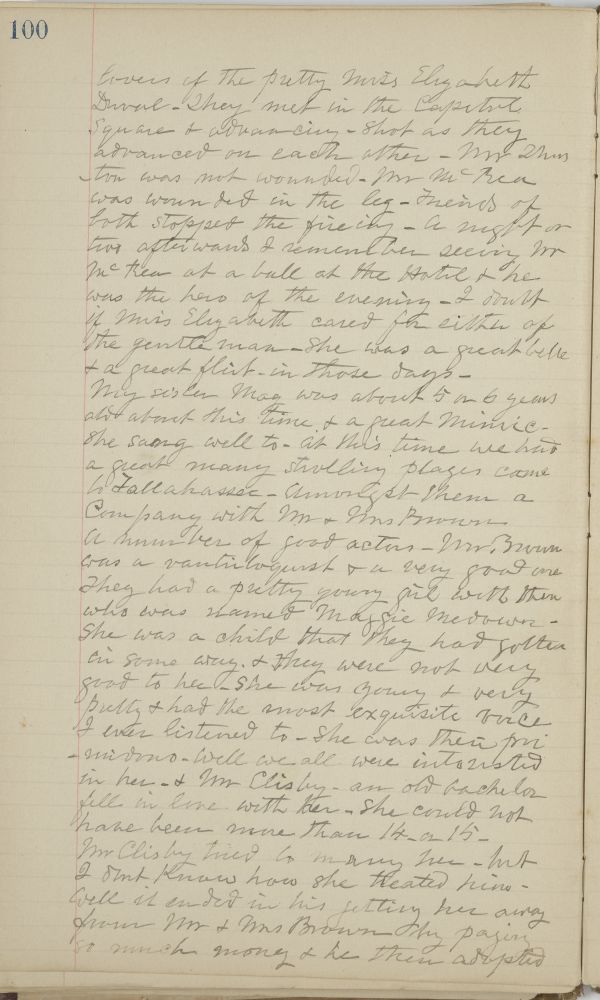 100
lovers of the pretty Miss Elizabeth
Duval - They met in the Capitol
Square & advancing - shot as they
advanced on each other - Mr Thurs
-ton was not wounded - Mr McRea
was wounded in the leg - Friends of
both stopped the fireing - A night or
two afterwards I remember seeing Mr
McRea at a ball at the Hotel & he
was the hero of the evening - I doubt
if Miss Elizabeth cared for either of
the gentleman - She was a great belle
& a great flirt - in those days -
My sister Mag was about 5 or 6 years
old about this time & a great mimic -
She sang well to - at this time we had
a great many strolling players come
to Tallahassee - Amongst them a
Company with Mr & Mrs Brown
A number of good actors - Mr. Brown
was a vantriloquist & a very good one
They had a pretty young girl with them
who was named Maggie
She was a child that they had gotten
in some way. & they were not very
good to her - She was young & very
pretty & had the most exquisite voice
I ever listened to - She was their pri
-madono - Well we all were interested
in her - & Mr Clisby - an old bachelor
fell in love with her - She could not
have been more than 14 - or 15 -
Mr Clisby tried to marry her - but
I dont know how she treated him -
Well it ended in his getting her away
from Mr & Mrs Brown by paying
so much money & he then adopted